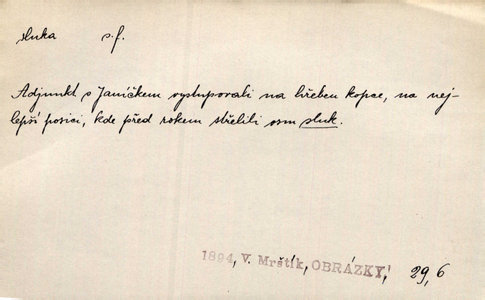 sluka s.f.
Adjunkt s Janíčkem vystupovali na hřeben kopce, na nej-
lepší posici, kde před rokem střelili osm sluk.
1894, V. Mrštík, OBRÁZKY, 29,6